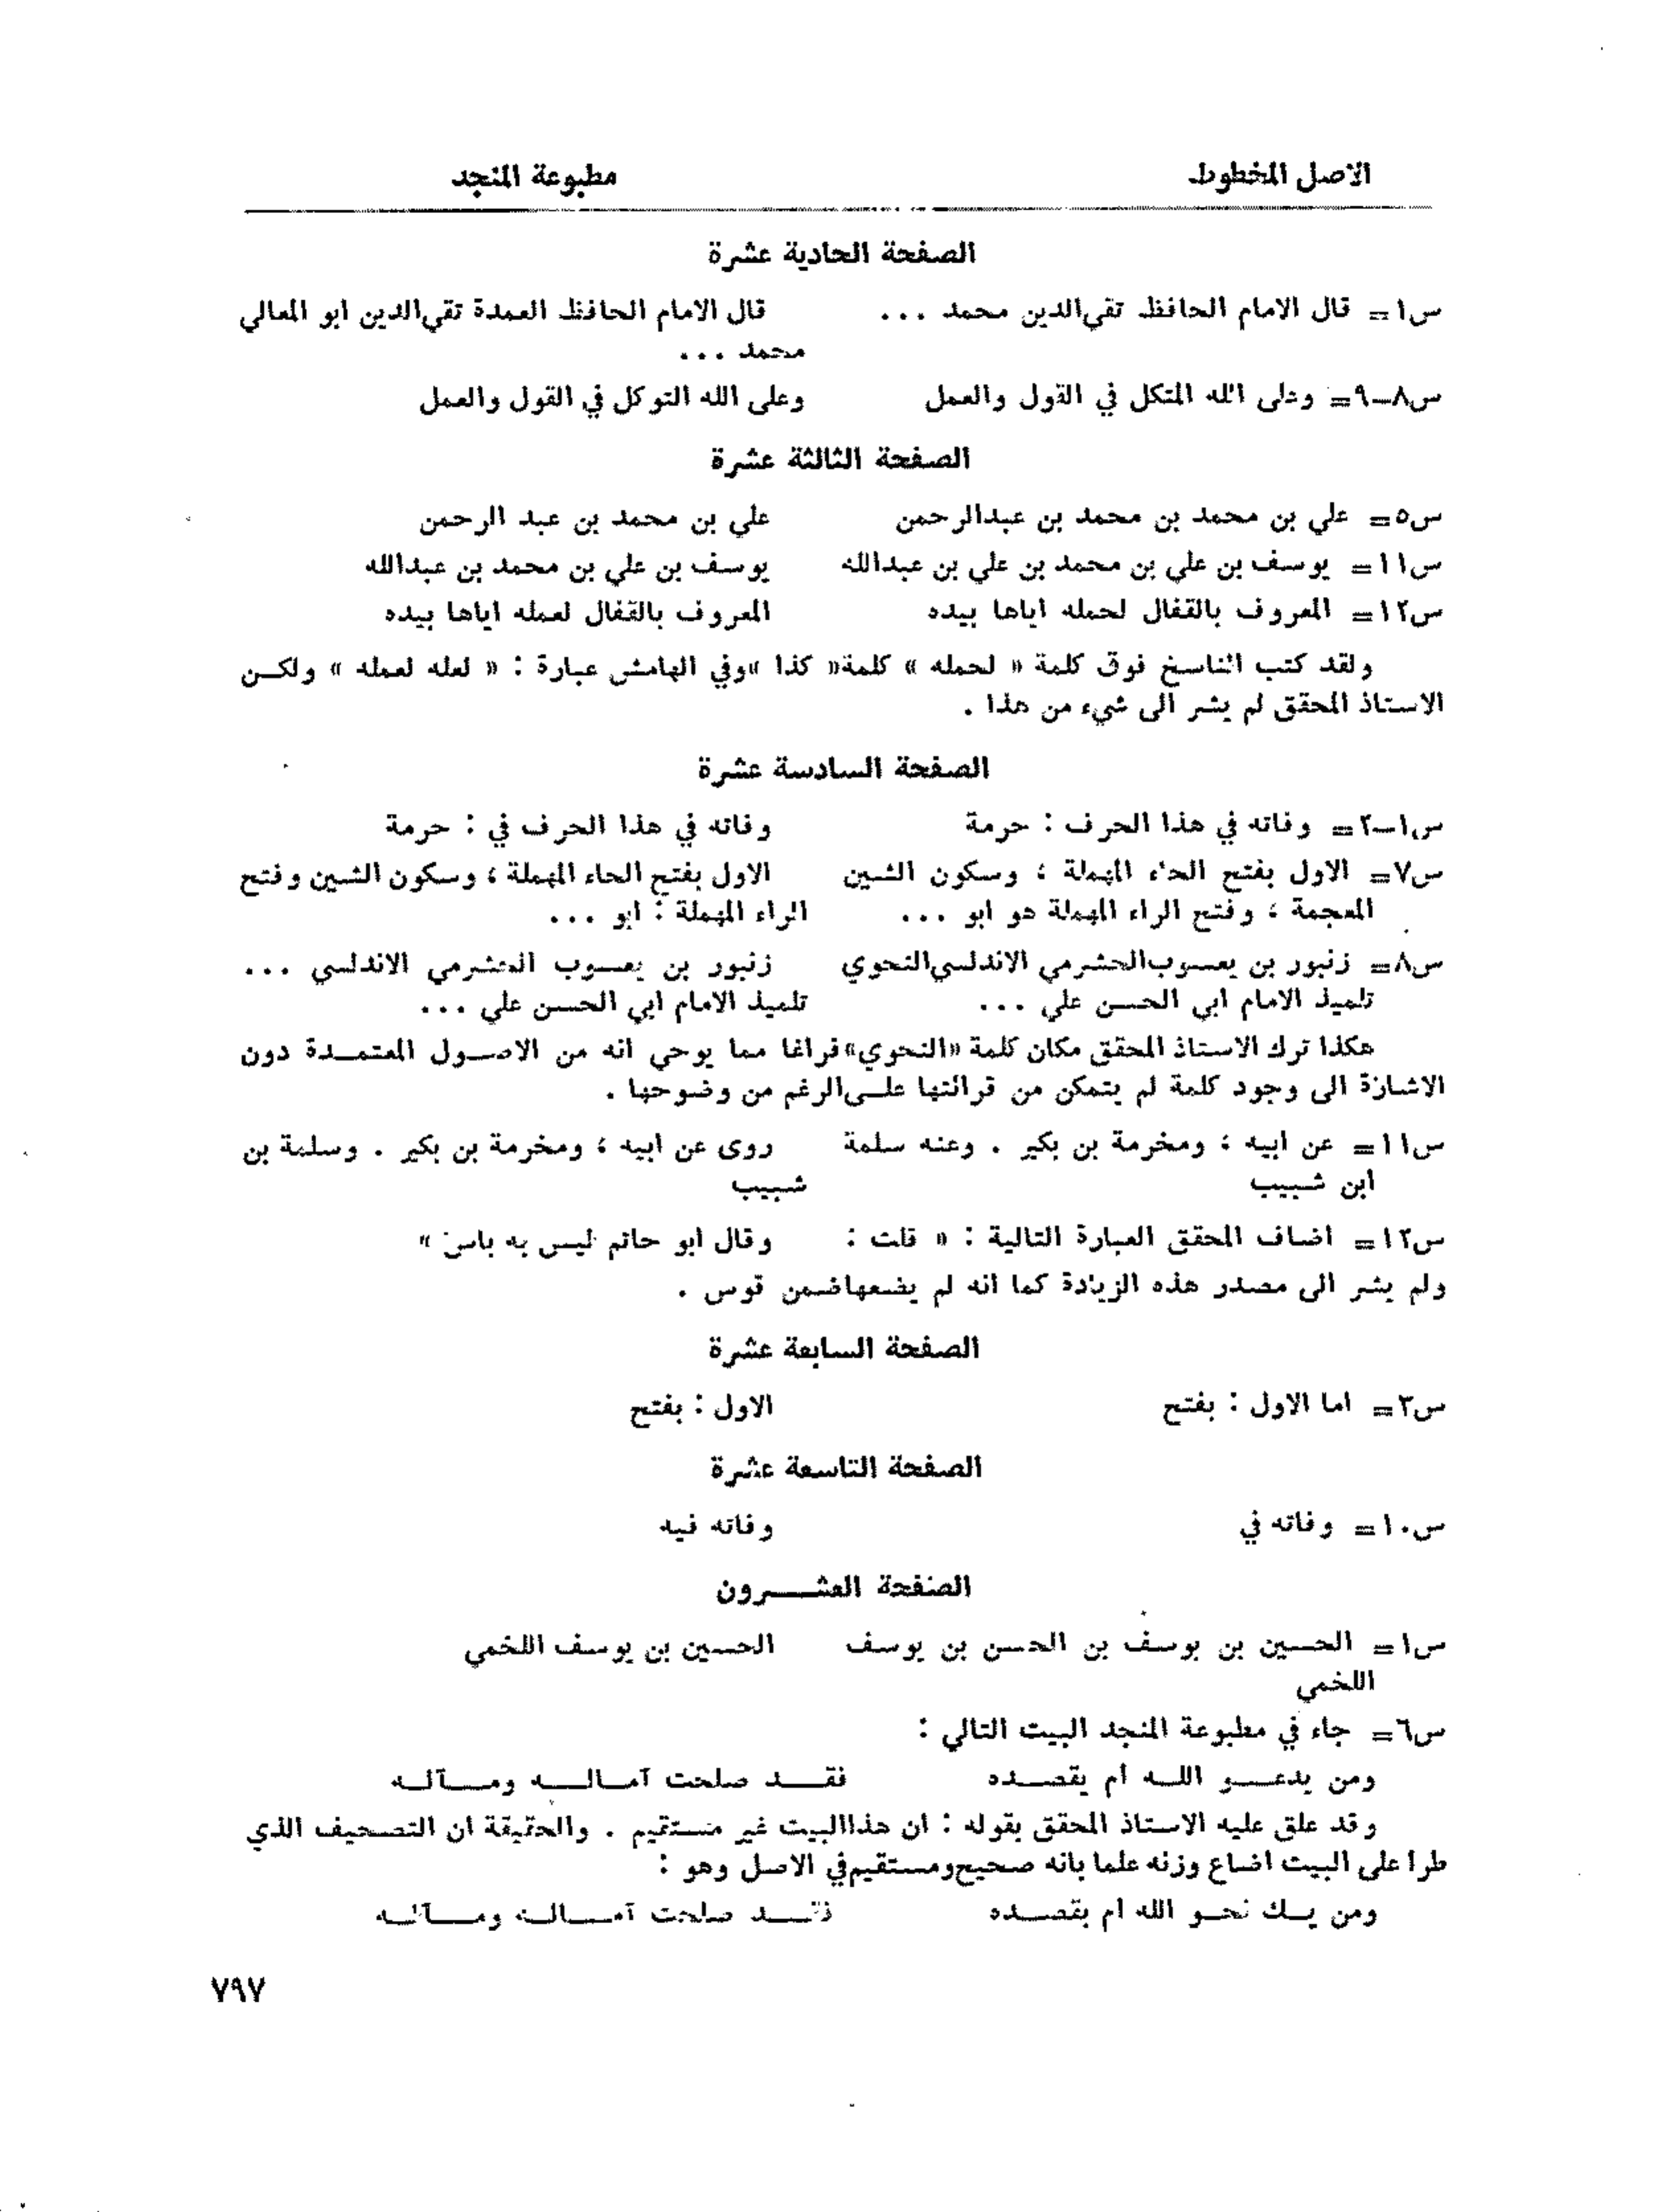 الاصل المخطوط مطبوعة المنجد
الصفحة الحادية عشرة
س١= قال الامام الحافظ تقي‌الدين محمد ... قال الامام الحافظ العمدة تقي‌الدين ابو المعالي
محمد ...
س٨–٩= وعلى الله المتكل في القول والعمل وعلى الله التوكل في القول والعمل
الصفحة الثالثة عشرة
س٥= علي بن محمد بن محمد بن عبدالرحمن علي بن محمد بن عبد الرحمن
س١١= يوسف بن علي بن محمد بن علي بن عبدالله يوسف بن علي بن محمد بن عبدالله
س١٢= المعروف بالقفال لحمله اياها بيده المعروف بالقفال لعمله اياها بيده
ولقد كتب الناسخ فوق كلمة « لحمله » كلمة« كذا »وفي الهامش عبارة : « لعله لعمله » ولكـن
الاستاذ المحقق لم يشر الى شيء من هذا .
الصفحة السادسة عشرة
س١–٢= وفاته في هذا الحرف : حرمة وفاته في هذا الحرف في : حرمة
س٧= الاول بفتح الحاء المهملة ؛ وسكون الشين الاول بفتح الحاء المهملة ؛ وسكون الشين وفتح
المعجمة ؛ وفتح الراء المهملة هو ابو ... الراء المهملة : ابو ...
س٨= زنبور بن يعسوب‌الحشرمي الاندلسي‌النحوي زنبور بن يعسوب الحشرمي الاندلسي ...
تلميذ الامام ابي الحسن علي ... تلميذ الامام ابي الحسن علي ...
هكذا ترك الاستاذ المحقق مكان كلمة «النحوي»فراغا مما يوحي انه من الاصـول المعتمـدة دون
الاشارة الى وجود كلمة لم يتمكن من قرائتها علـى‌الرغم من وضوحها .
س١١= عن ابيه ؛ ومخرمة بن بكير . وعنه سلمة روى عن ابيه ؛ ومخرمة بن بكير . وسلمة بن
ابن شبيب شبيب
س١٢= اضاف المحقق العبارة التالية : « قلت : وقال ابو حاتم ليس به باس »
ولم يشر الى مصدر هذه الزيادة كما انه لم يضعهاضمن قوس .
الصفحة السابعة عشرة
س٣= اما الاول : بفتح الاول : بفتح
الصفحة التاسعة عشرة
س١٠= وفاته في وفاته فيه
الصفحة العشـــرون
س١= الحسين بن يوسف بن الحسن بن يوسف الحسين بن يوسف اللخمي
اللخمي
س٦= جاء في مطبوعة المنجد البيت التالي :
ومن يدعـــو اللـه ام يقصـده فقـــد صلحت آمـالـــه ومـــآلـه
وقد علق عليه الاستاذ المحقق بقوله : ان هذاالبيت غير مستقيم . والحقيقة ان التصحيف الذي
طرا على البيت اضاع وزنه علما بانه صحيح‌ومستقيم‌في الاصل وهو :
ومن يـك نحـو الله ام يقصـده فقـــد صلحت آمـــالـه ومـــآلـه
٧٩٧